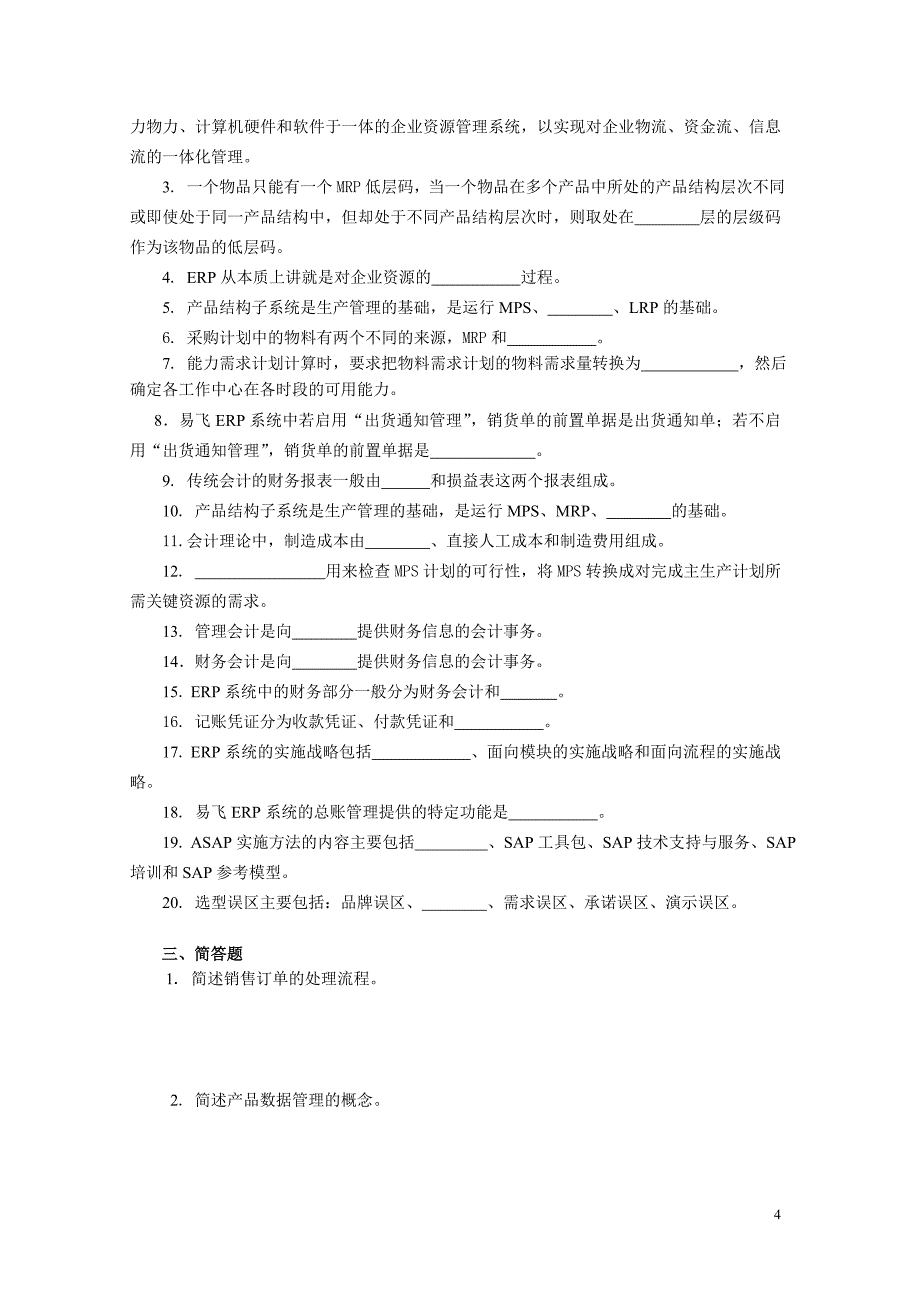 力物力、计算机硬件和软件于一体的企业资源管理系统，以实现对企业物流、资金流、信息
流的一体化管理。
3. 一个物品只能有一个 MRP 低层码，当一个物品在多个产品中所处的产品结构层次不同
或即使处于同一产品结构中，但却处于不同产品结构层次时，则取处在________层的层级码
作为该物品的低层码。
4. ERP 从本质上讲就是对企业资源的___________过程。
5. 产品结构子系统是生产管理的基础，是运行 MPS、________、LRP 的基础。
6. 采购计划中的物料有两个不同的来源，MRP 和___________。
7. 能力需求计划计算时，要求把物料需求计划的物料需求量转换为____________，然后
确定各工作中心在各时段的可用能力。
8．易飞 ERP 系统中若启用“出货通知管理”，销货单的前置单据是出货通知单；若不启
用“出货通知管理”，销货单的前置单据是_____________。
9. 传统会计的财务报表一般由______和损益表这两个报表组成。
10. 产品结构子系统是生产管理的基础，是运行 MPS、MRP、________的基础。
11. 会计理论中，制造成本由________、直接人工成本和制造费用组成。
12. ________________用来检查 MPS 计划的可行性，将 MPS 转换成对完成主生产计划所
需关键资源的需求。
13. 管理会计是向________提供财务信息的会计事务。
14．财务会计是向________提供财务信息的会计事务。
15. ERP 系统中的财务部分一般分为财务会计和_______。
16. 记账凭证分为收款凭证、付款凭证和___________。
17. ERP 系统的实施战略包括____________、面向模块的实施战略和面向流程的实施战
略。
18. 易飞 ERP 系统的总账管理提供的特定功能是___________。
19. ASAP 实施方法的内容主要包括_________、SAP 工具包、SAP 技术支持与服务、SAP
培训和 SAP 参考模型。
20. 选型误区主要包括：品牌误区、________、需求误区、承诺误区、演示误区。
三、简答题
1. 简述销售订单的处理流程。
2. 简述产品数据管理的概念。
4